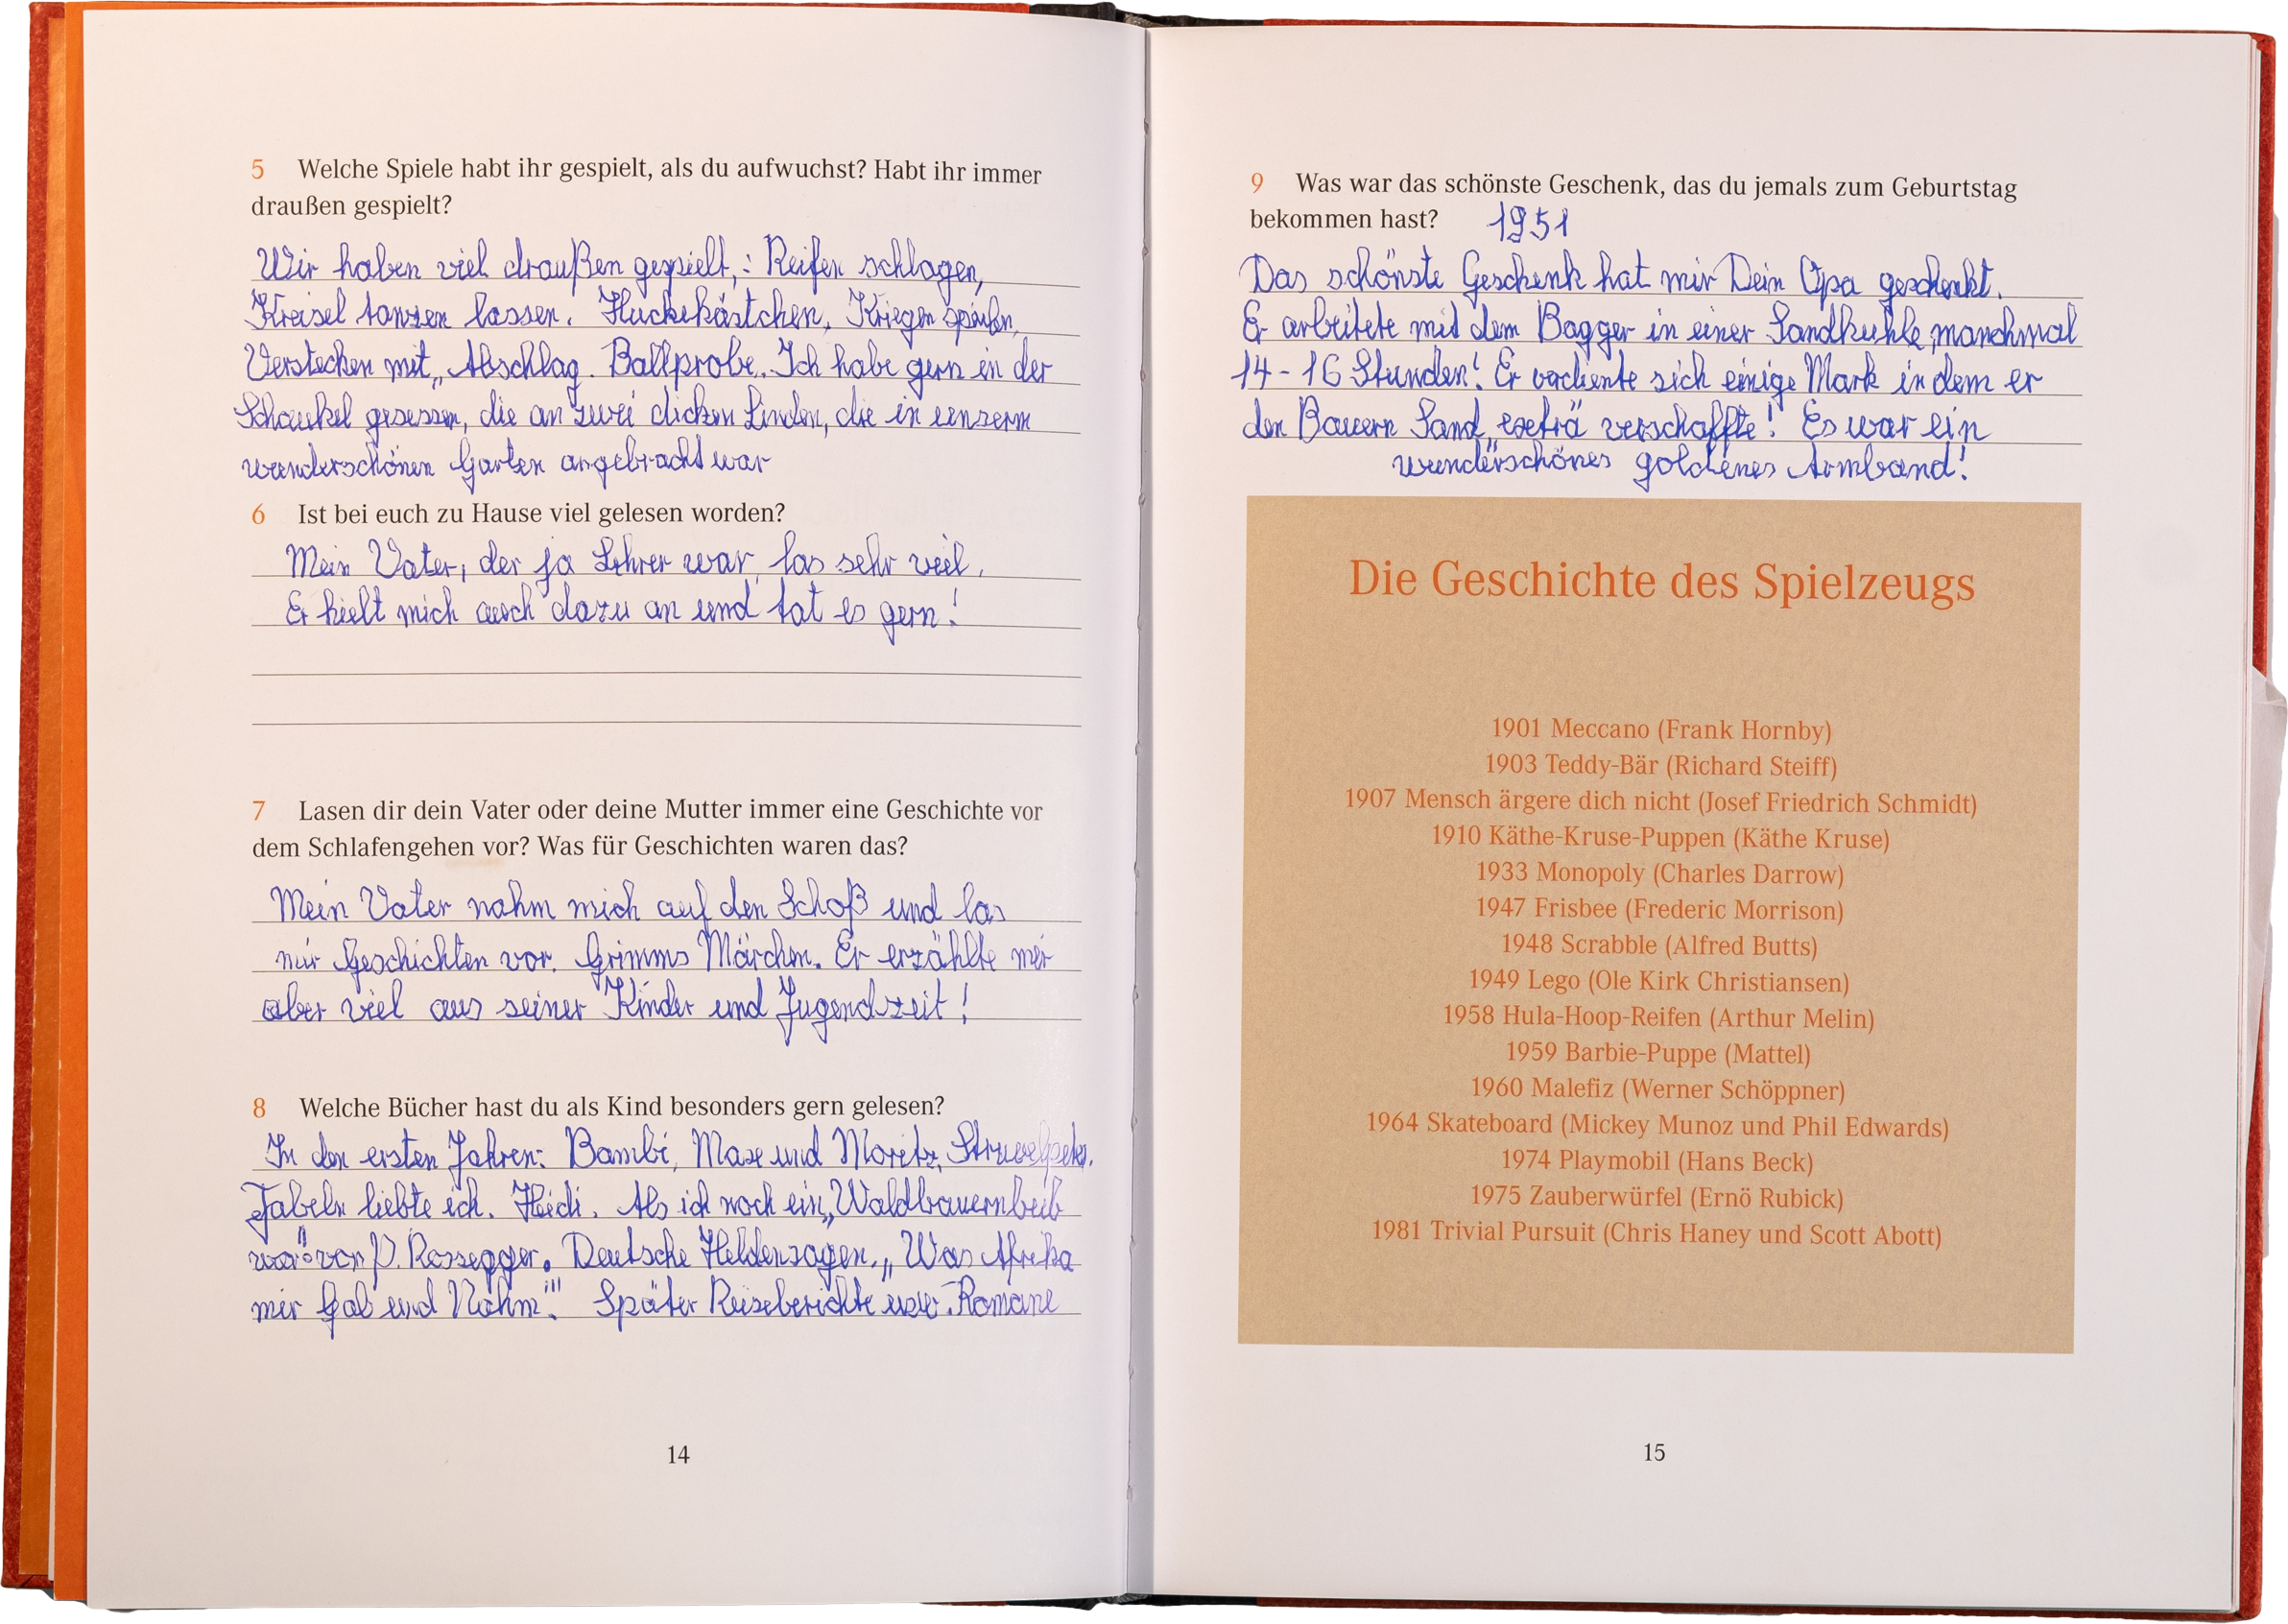 5 Welche Spiele habt ihr gespielt, als du aufwuchst? Habt ihr immer
draußen gespielt?
Wir haben viel draußen gespielt,: Reifen schlagen,
Kreisel tanzen lassen. Huckekästchen, Kriegen spielen,
Verstecken mit „Abschlag. Ballprobe. Ich habe gern in der
Schaukel gesessen, die an zwei dicken Linden, die in unserm
wunderschönen Garten angebracht war
6 Ist bei euch zu Hause viel gelesen worden?
Mein Vater, der ja Lehrer war, las sehr viel.
Er hielt mich auch dazu an und tat es gern!
7 Lasen dir dein Vater oder deine Mutter immer eine Geschichte vor
dem Schlafengehen vor? Was für Geschichten waren das?
Mein Vater nahm mich auf den Schoß und las
mir Geschichten vor. Grimms Märchen. Er erzählte mir
aber viel aus seiner Kinder und Jugendzeit!
8 Welche Bücher hast du als Kind besonders gern gelesen?
In den ersten Jahren: Bambi, Max und Moritz, Struwelpeter.
Fabeln liebte ich. Heidi. Als ich noch ein „Waldbauernbub
war" von P. Rossegger. Deutsche Heldensagen. „Was Afrika
mir Gab und Nahm". Später Reiseberichte usw. Romane
14
9 Was war das schönste Geschenk, das du jemals zum Geburtstag
bekommen hast? 1951
Das schönste Geschenk hat mir Dein Opa geschenkt.
Er arbeitete mit dem Bagger in einer Sandkuhle, manchmal
14-16 Stunden! Er verdiente sich einige Mark in dem er
den Bauern Sand „extra" verschaffte! Es war ein
wunderschönes goldenes Armband!
Die Geschichte des Spielzeugs
1901 Meccano (Frank Hornby)
1903 Teddy-Bär (Richard Steiff)
1907 Mensch ärgere dich nicht (Josef Friedrich Schmidt)
1910 Käthe-Kruse-Puppen (Käthe Kruse)
1933 Monopoly (Charles Darrow)
1947 Frisbee (Frederic Morrison)
1948 Scrabble (Alfred Butts)
1949 Lego (Ole Kirk Christiansen)
1958 Hula-Hoop-Reifen (Arthur Melin)
1959 Barbie-Puppe (Mattel)
1960 Malefiz (Werner Schöppner)
1964 Skateboard (Mickey Munoz und Phil Edwards)
1974 Playmobil (Hans Beck)
1975 Zauberwürfel (Ernö Rubick)
1981 Trivial Pursuit (Chris Haney und Scott Abott)
15